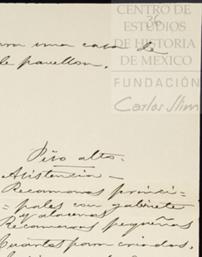 CENTRO DE
ESTUDIOS
DE HISTORIA
DE MEXICO
FUNDACIÓN
Carlos Slim
36
para una casa de
de pavellon.
Piso alto.
Asistencia
Recamaras princi-
pales con gabinete
y alacenas
Recamaras pequeñas
Cuartos para criados.